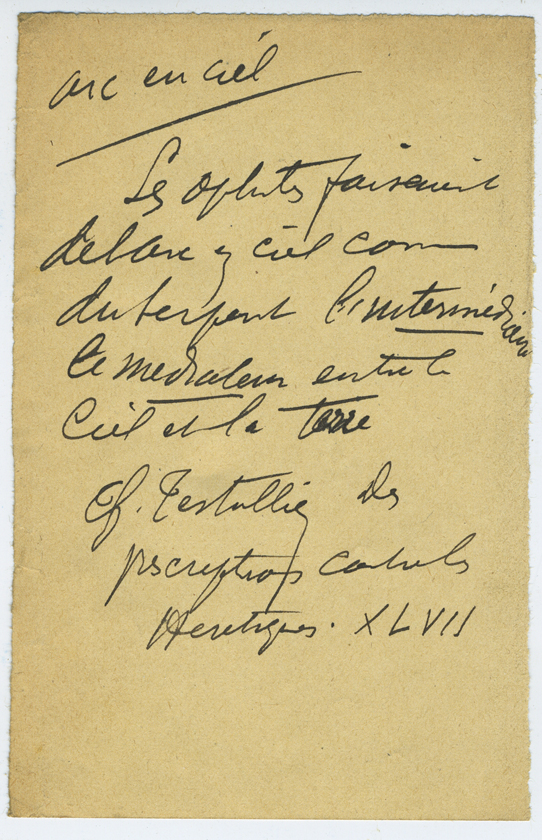 arc en ciel
Les ophites faisaient
de l'arc en ciel comme
du serpent l'intermédiaire
le médiateur entre le
Ciel et la terre
Cf. Tertullien Des
prescriptions contre les
Heretiques. XLVII